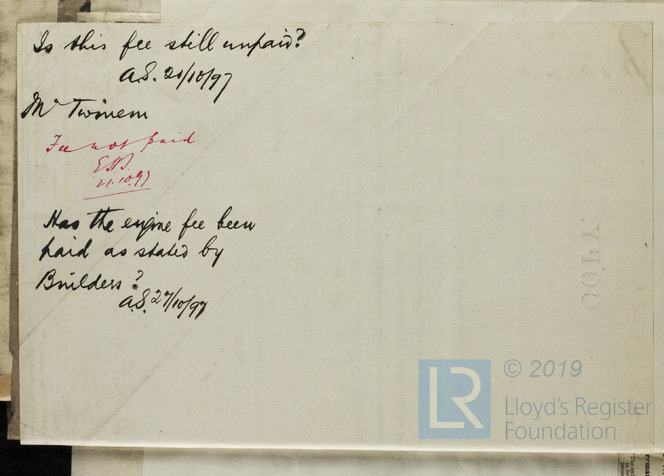 Is this fee still unpaid?
A.S. 20/10/97
Mr Twinem
Fee not paid
21.10.97
Has the engine fee been
paid as stated by
Builders?
A.S. 27/10/97
COPY
LR
© 2019
Lloyd's Register
Foundation